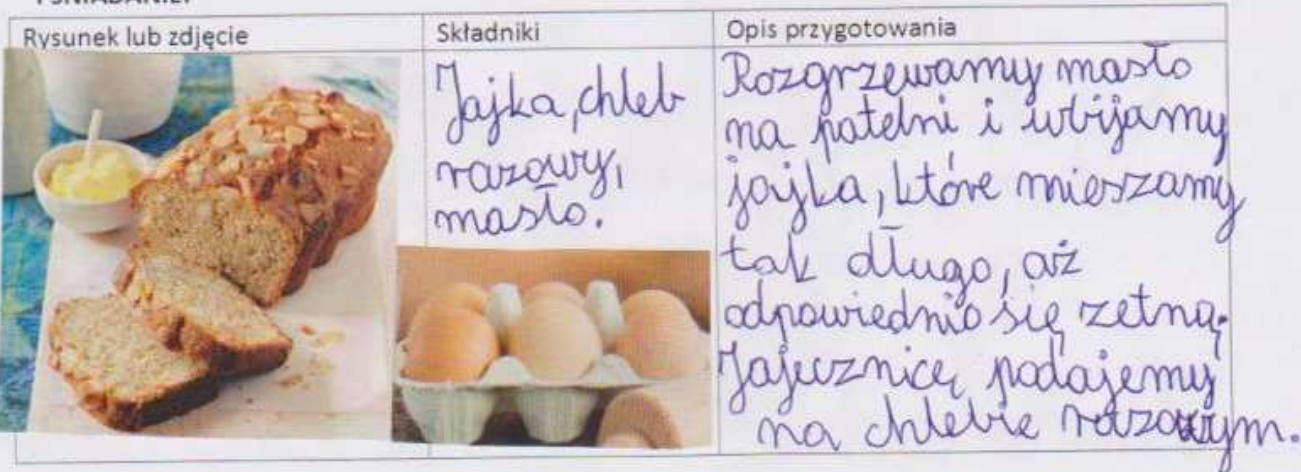 I ŚNIADANIE:
Rysunek lub zdjęcie
Składniki
Opis przygotowania
Jajka, chleb
razowy,
masło.
Rozgrzewamy masło
na patelni i wbijamy
jajka, które mieszamy
tak długo, aż
odpowiednio się zetną.
Jajecznicę podajemy
na chlebie razowym.